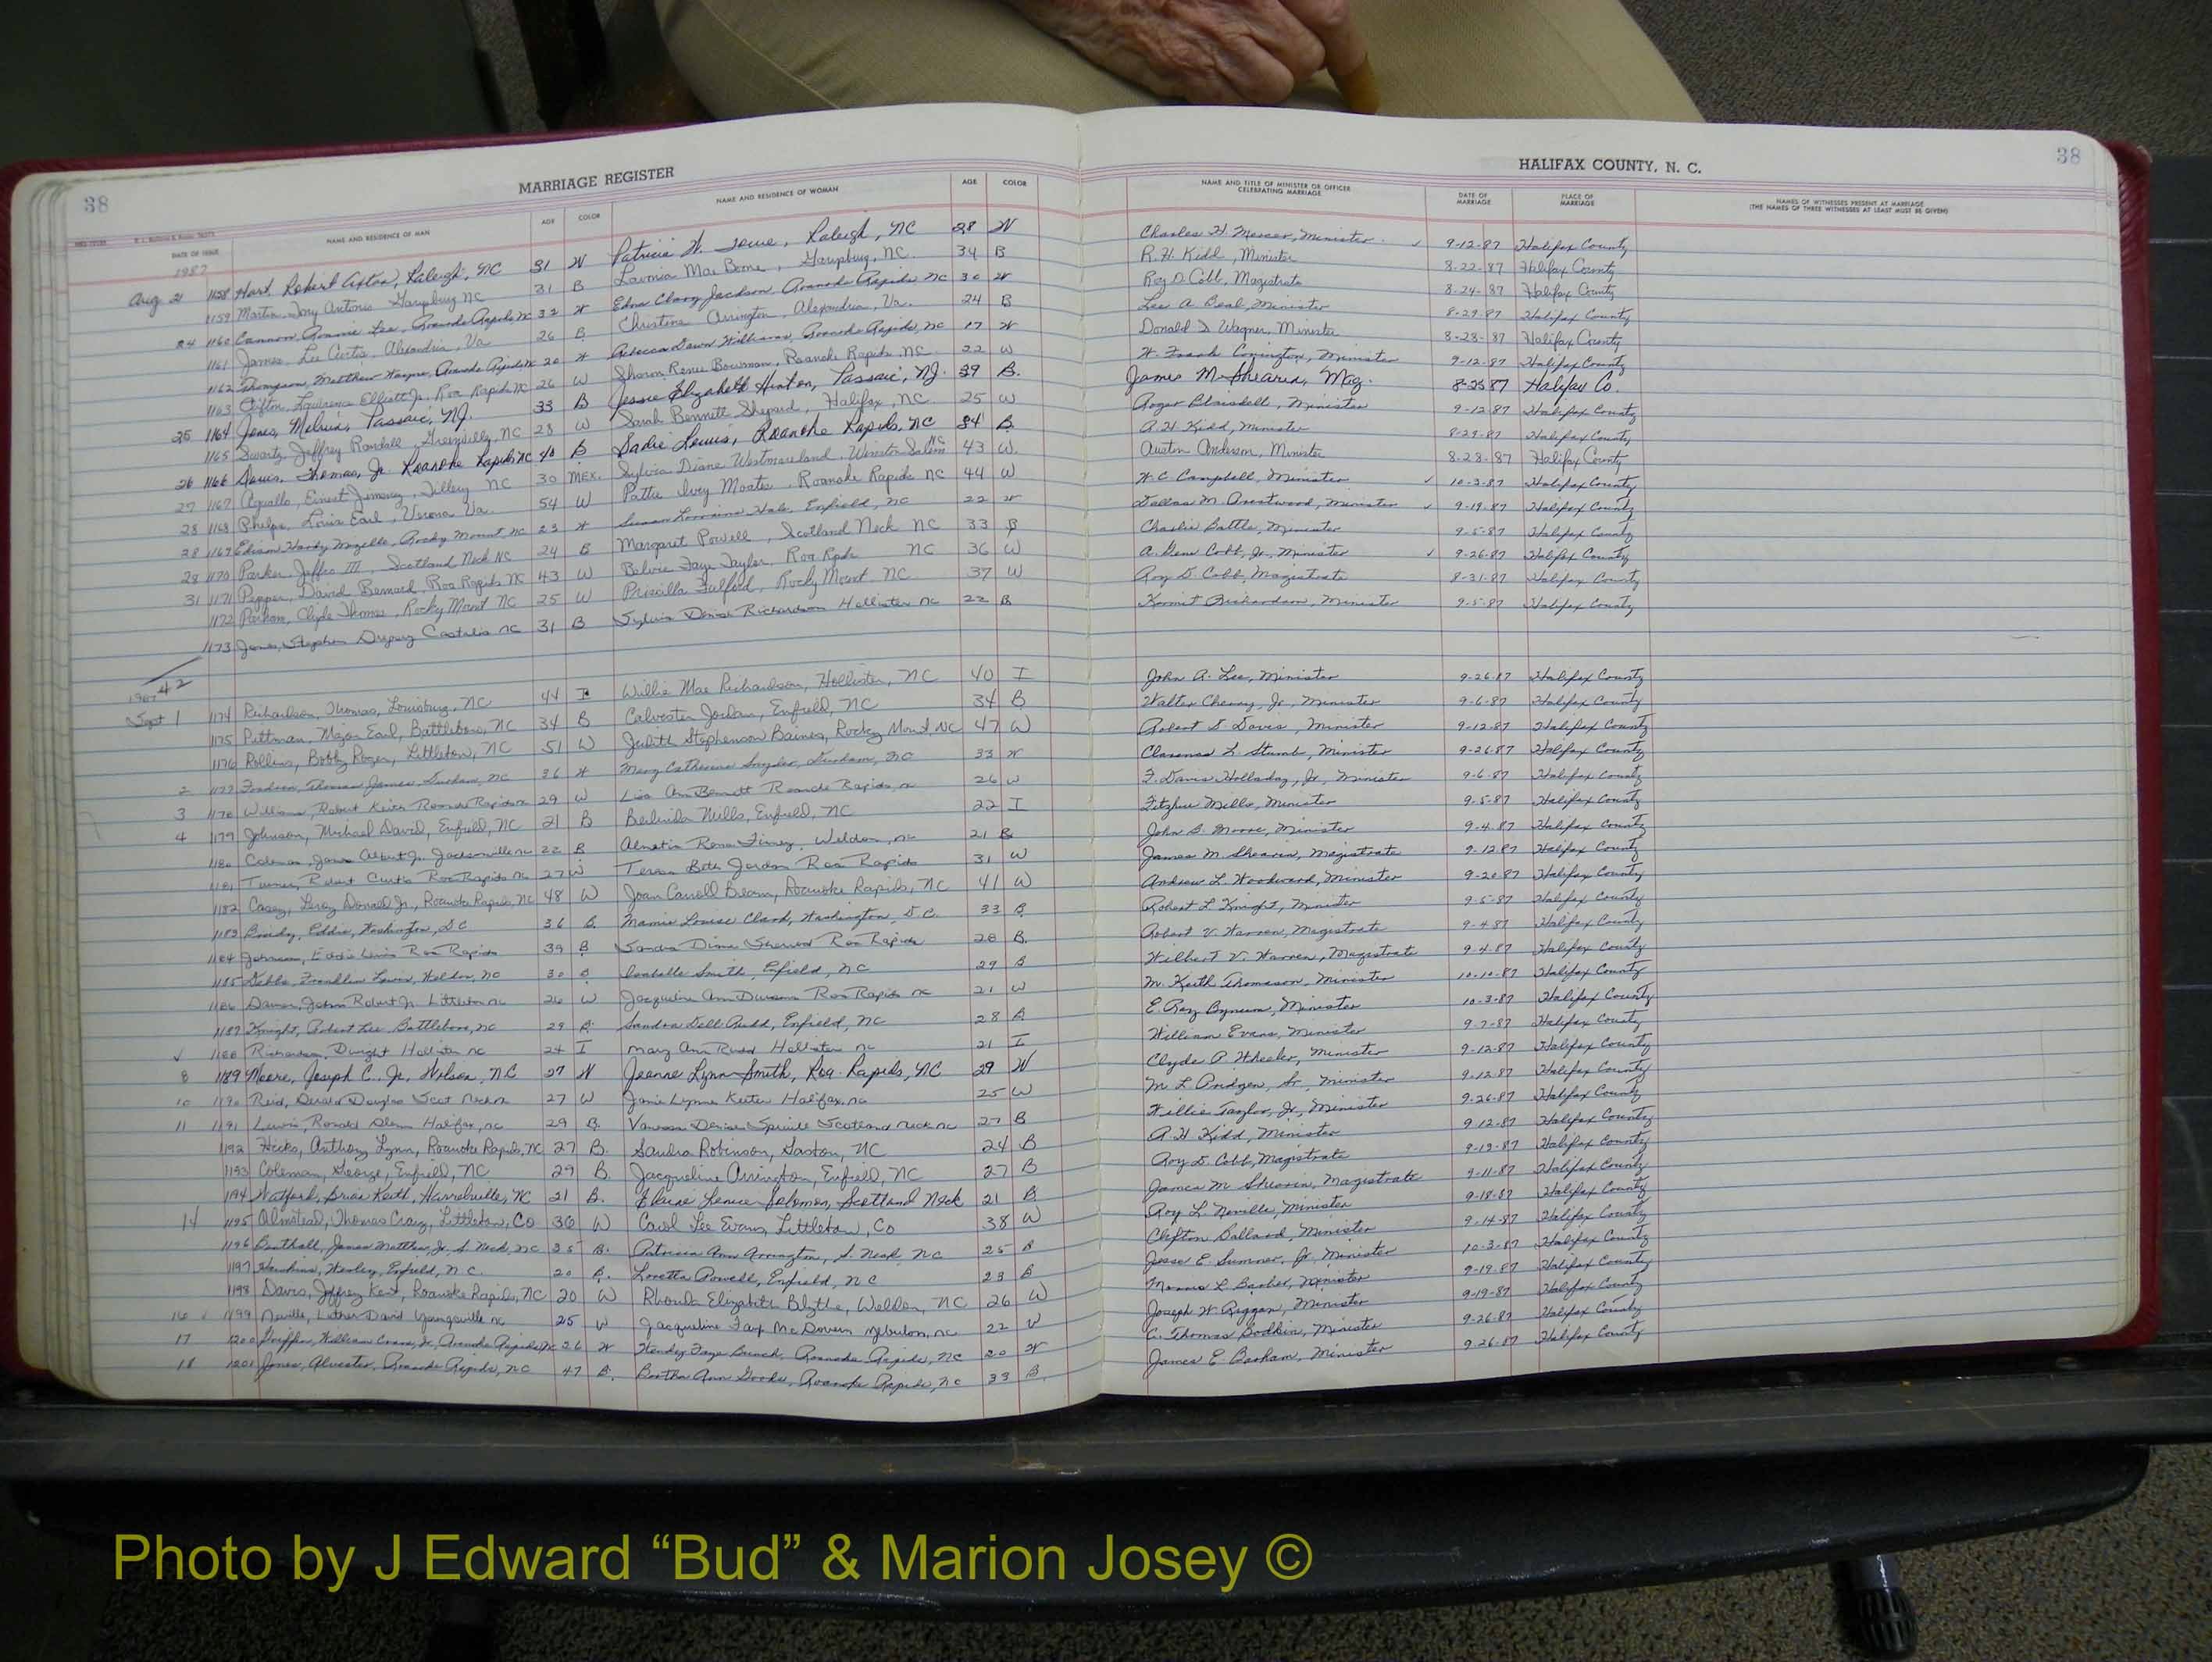 38
MARRIAGE REGISTER
HALIFAX COUNTY, N. C.
38
DATE OF ISSUE
NAME AND RESIDENCE OF MAN
AGE
COLOR
NAME AND RESIDENCE OF WOMAN
AGE
COLOR
NAME AND TITLE OF MINISTER OR OFFICER
CELEBRATING MARRIAGE
DATE OF
MARRIAGE
PLACE OF
MARRIAGE
NAMES OF WITNESSES PRESENT AT MARRIAGE
(THE NAMES OF THREE WITNESSES AT LEAST MUST BE GIVEN)
1987
Aug 21 1158 Hart, Robert Raleigh, NC 31 W Patricia W. Raleigh, NC 28 W Charles H Mercer, Minister 9-12-87 Halifax County
1159 Martin, Tony Antonio Garysburg NC 31 B Lavinia Mae Boone, Garysburg, NC. 34 B R.H. Kidd, Minister 8-22-87 Halifax County
24 1160 Cannon, Ronnie Lee, Roanoke Rapids, NC 32 W Edna Clary Jackson, Roanoke Rapids NC 30 W Roy D. Cobb, Magistrate 8-24-87 Halifax County
1161 James, Lee Curtis, Alexandria, Va 26 B Christine Arrington, Alexandria, Va. 24 B Lee A. Beal, Minister 8-29-87 Halifax County
1162 Thompson, Matthew Wayne, Roanoke Rapids NC 20 W Rebecca Dawn Williams, Roanoke Rapids, NC 17 W Donald D Wagner, Minister 8-28-87 Halifax County
1163 Clifton, Lawrence Elliott Jr, Roa Rapids NC 26 W Sharon Renee Bowman, Roanoke Rapids NC. 22 W W. Frank Minister 9-12-87 Halifax County
25 1164 Jones, Melvin, Passaic, NJ. 33 B Jessie Elizabeth Hinton, Passaic, NJ. 39 B. James M Shearin, Mag. 8-25-87 Halifax Co.
1165 Swartz, Jeffrey Randall, Greenville, NC 23 W Sarah Bennett Shepard, Halifax, NC 25 W Roger Blaisdell, Minister 9-12-87 Halifax County
26 1166 Davis, Thomas, Jr. Roanoke Rapids NC B Sadie Lewis, Roanoke Rapids, NC 34 B. A H Kidd, Minister 8-29-87 Halifax County
27 1167 Ernest Jimenez, Tillery NC 30 MEX. Sylvia Diane Westmoreland, Winston Salem NC 43 W. Austin Anderson, Minister 8-28-87 Halifax County
28 1168 Phelps, Louis Earl, Verona Va. 54 W Pattie Ivey Moate, Roanoke Rapids NC 44 W W C Campbell, Minister 10-3-87 Halifax County
28 1169 Edison Hardy Rocky Mount NC 23 W Susan Lorraine Hale, Enfield, NC 22 W Dallas M. Minister 9-19-87 Halifax County
28 1170 Parker, Jeffro III, Scotland Neck NC 24 B Margaret Powell, Scotland Neck NC 33 B Charlie Battle, Minister 9-5-87 Halifax County
31 1171 Pepper, David Bernard, Roa Rapids NC 43 W Faye Taylor, Roa Rpds NC 36 W A. Gene Cobb, Jr, Minister 9-26-87 Halifax County
1172 Parham, Clyde Thomas, Rocky Mount NC 25 W Priscilla Fulford, Rocky Mount, NC 37 W Roy D. Cobb, Magistrate 8-31-87 Halifax County
1173 Jones, Stephen Castalia NC 31 B Sylvia Denise Richardson Hollister NC 22 B Kermit Richardson, Minister 9-5-87 Halifax County
42
1987
Sept 1 1174 Richardson, Thomas, Louisburg, NC 44 I Willie Mae Richardson, Hollister, NC 40 I John A. Lee, Minister 9-26-87 Halifax County
1175 Pittman, Major Earl, Battleboro, NC 34 B Calvester Jordan, Enfield, NC 34 B Walter Cherry, Jr, Minister 9-6-87 Halifax County
1176 Rollins, Bobby Roger, Littleton, NC 51 W Judith Stephenson Baines, Rocky Mount, NC 47 W Robert D Davis, Minister 9-12-87 Halifax County
2 1177 Thomas James, Durham, NC 36 W Mary Catherine Snyder, Durham, NC 33 W Clarence L Minister 9-26-87 Halifax County
3 1178 Robert Keith Roanoke Rapids NC 29 W Lisa Ann Bennett Roanoke Rapids 26 W F. Davis Holladay, Jr, Minister 9-6-87 Halifax County
4 1179 Johnson, Michael David, Enfield, NC 21 B Belinda Mills, Enfield, NC 22 I Mills, Minister 9-5-87 Halifax County
1180 Coleman, James Albert Jr. Jacksonville NC 22 B Almetia Rena Weldon, NC 21 B John B. Moore, Minister 9-4-87 Halifax County
1181 Turner, Robert Curtis Roa Rapids NC 27 W Teresa Beth Jordan Roa Rapids 31 W James M. Shearin, Magistrate 9-12-87 Halifax County
1182 Casey, Leroy Donald Jr., Roanoke Rapids, NC 48 W Joan Carroll Beam, Roanoke Rapids, NC 41 W Andrew L. Woodward, Minister 9-20-87 Halifax County
1183 Eddie, Washington, DC 36 B. Mamie Louise Clark, Washington, D.C. 33 B Robert L Knight, Minister 9-5-87 Halifax County
1184 Johnson, Eddie Roa Rapids 39 B Sandra Diane Roa Rapids 28 B. Robert V. Warren, Magistrate 9-4-87 Halifax County
1185 Franklin Lewis, Weldon, NC 30 B Isabelle Smith, Enfield, NC 29 B Wilbert V. Warren, Magistrate 9-4-87 Halifax County
1186 John Robert Jr. Littleton NC 26 W Jacqueline Ann Roa Rapids NC 21 W M. Keith Thomason, Minister 10-10-87 Halifax County
1187 Knight, Robert Lee Battleboro, NC 29 B. Sandra Dell Rudd, Enfield, NC 28 B E. Ray Bynum, Minister 10-3-87 Halifax County
1188 Richardson, Dwight Hollister NC 24 I Mary Ann Hollister NC 21 I William Evans, Minister 9-7-87 Halifax County
8 1189 Moore, Joseph C., Jr. Wilson, NC 27 W Jeanne Lynn Smith, Roa. Rapids, NC 29 W Clyde P. Wheeler, Minister 9-12-87 Halifax County
10 1190 Reid, Douglas Scot Neck NC 27 W Janie Lynne Keeter Halifax, NC 25 W M L Pridgen, Sr. Minister 9-12-87 Halifax County
11 1191 Lewis, Ronald Glenn Halifax, NC 29 B. Vanessa Denise Spruill Scotland Neck NC 27 B Willie Taylor, Jr, Minister 9-26-87 Halifax County
1192 Hicks, Anthony Lynn, Roanoke Rapids, NC 27 B. Sandra Robinson, Gaston, NC 24 B A H Kidd, Minister 9-12-87 Halifax County
1193 Coleman, George, Enfield, NC 29 B. Jacqueline Arrington, Enfield, NC 27 B Roy D. Cobb, Magistrate 9-12-87 Halifax County
1194 Watford, Brian Keith, Harrellsville, NC 21 B. Elaine Lenice Solomon, Scotland Neck 21 B James M Shearin, Magistrate 9-11-87 Halifax County
14 1195 Olmstead, Thomas Craig, Littleton, CO 36 W Carol Lee Evans, Littleton, CO 38 W Roy L. Neville, Minister 9-18-87 Halifax County
1196 James Matthew, Jr, S. Neck, NC 35 B. Patricia Ann Arrington, S. Neck, NC 25 B Clifton Ballard, Minister 9-14-87 Halifax County
1197 Hawkins, Wesley, Enfield, N.C. 20 B. Loretta Powell, Enfield, NC 23 B Jesse E. Sumner, Jr. Minister 10-3-87 Halifax County
1198 Davis, Jeffrey Kent, Roanoke Rapids, NC 20 W Rhonda Elizabeth Blythe, Weldon, NC 26 W Morris L Barber, Minister 9-19-87 Halifax County
16 1199 Neville, Luther David Youngsville NC 25 W Jacqueline Faye McGovern Zebulon, NC 22 W Joseph W. Riggan, Minister 9-19-87 Halifax County
17 1200 Griffin, William Jr, Roanoke Rapids NC 26 W Wendy Faye Branch, Roanoke Rapids, NC 20 W C. Thomas Bodkin, Minister 9-26-87 Halifax County
18 1201 Jones, Alvester, Roanoke Rapids, NC 47 B. Bertha Ann Goode, Roanoke Rapids, NC 33 B. James E. Barham, Minister 9-26-87 Halifax County
Photo by J Edward “Bud” & Marion Josey ©